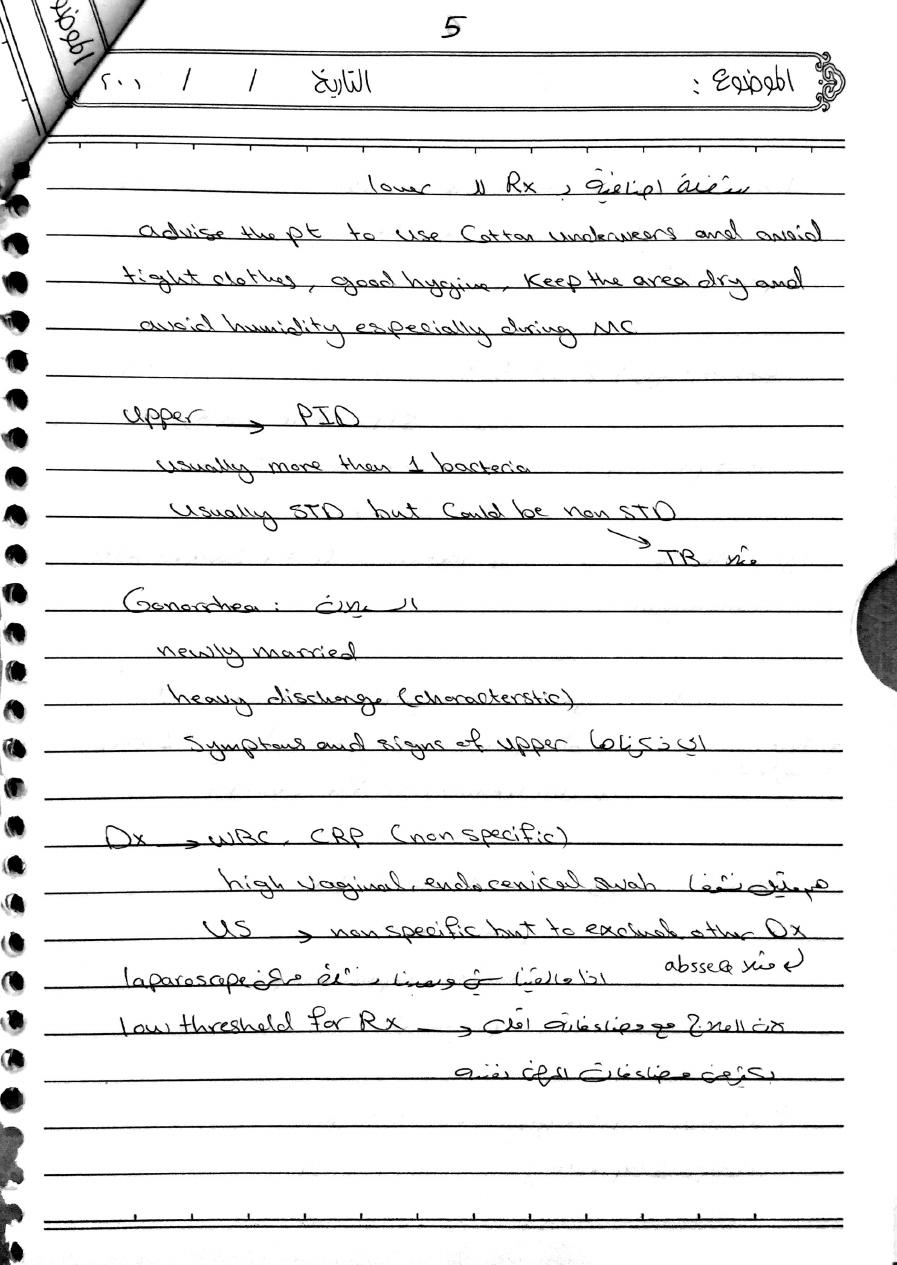 5
الموضوع : التاريخ / / ٢٠١
شغلة اضافية بـ Rx الـ lower
advise the pt to use Cotton underwears and avoid
tight clothes, good hygine, Keep the area dry and
avoid humidity especially during MC
upper → PID
usually more than 1 bacteria
usually STD but Could be non STD
مثلا TB
Gonorrhea : السيلان
newly married
heavy discharge (characterstic)
Symptoms and signs of upper الي ذكرناها
Dx → WBC, CRP (non specific)
high vaginal, endocervical swab
US → non specific but to exclude other Dx
مثلا abssea
اذا ما لقينا شي و laparoscope
low threshold for Rx → لان العلاج مع مضاعفاته اقل
بكثير من مضاعفات المرض نفسه